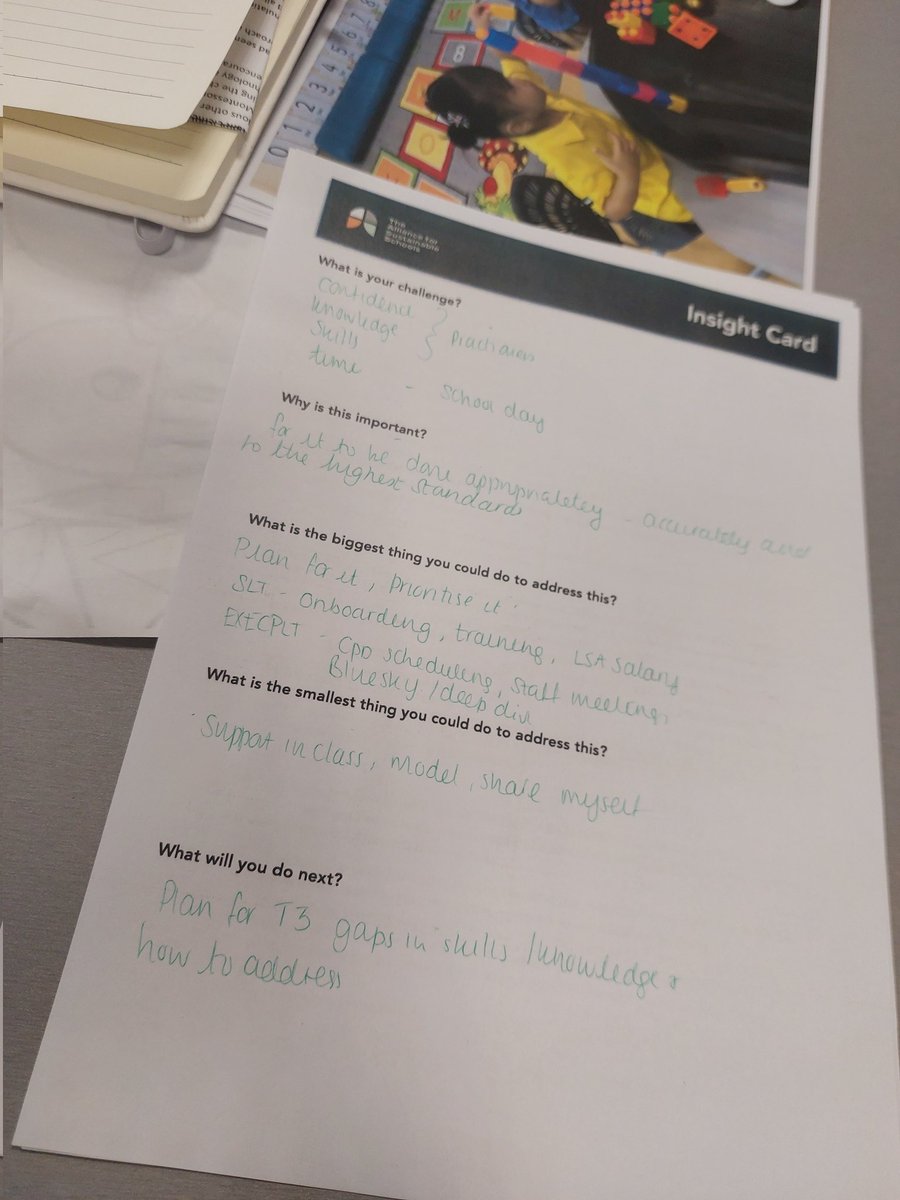 The
Alliance for
Sustainable
Schools
Insight Card
What is your challenge?
confidence
knowledge
skills
time - school day
Why is this important?
for it to be done appropriately - accurately and
to the highest standards
What is the biggest thing you could do to address this?
Plan for it, Prioritise it.
SLT - onboarding, training, LSA salary
EXECPLT - CPD scheduling, staff meetings,
Bluesky / deep dive
What is the smallest thing you could do to address this?
Support in class, model, share myself
What will you do next?
Plan for T3 gaps in skills / knowledge &
how to address